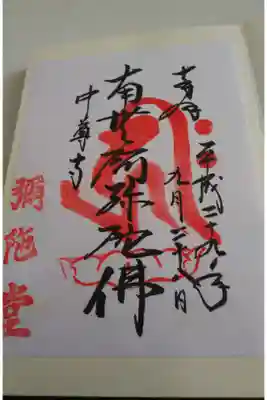 奉拝
平成二十九年
九月
南無阿弥陀佛
中尊寺
彌陀堂